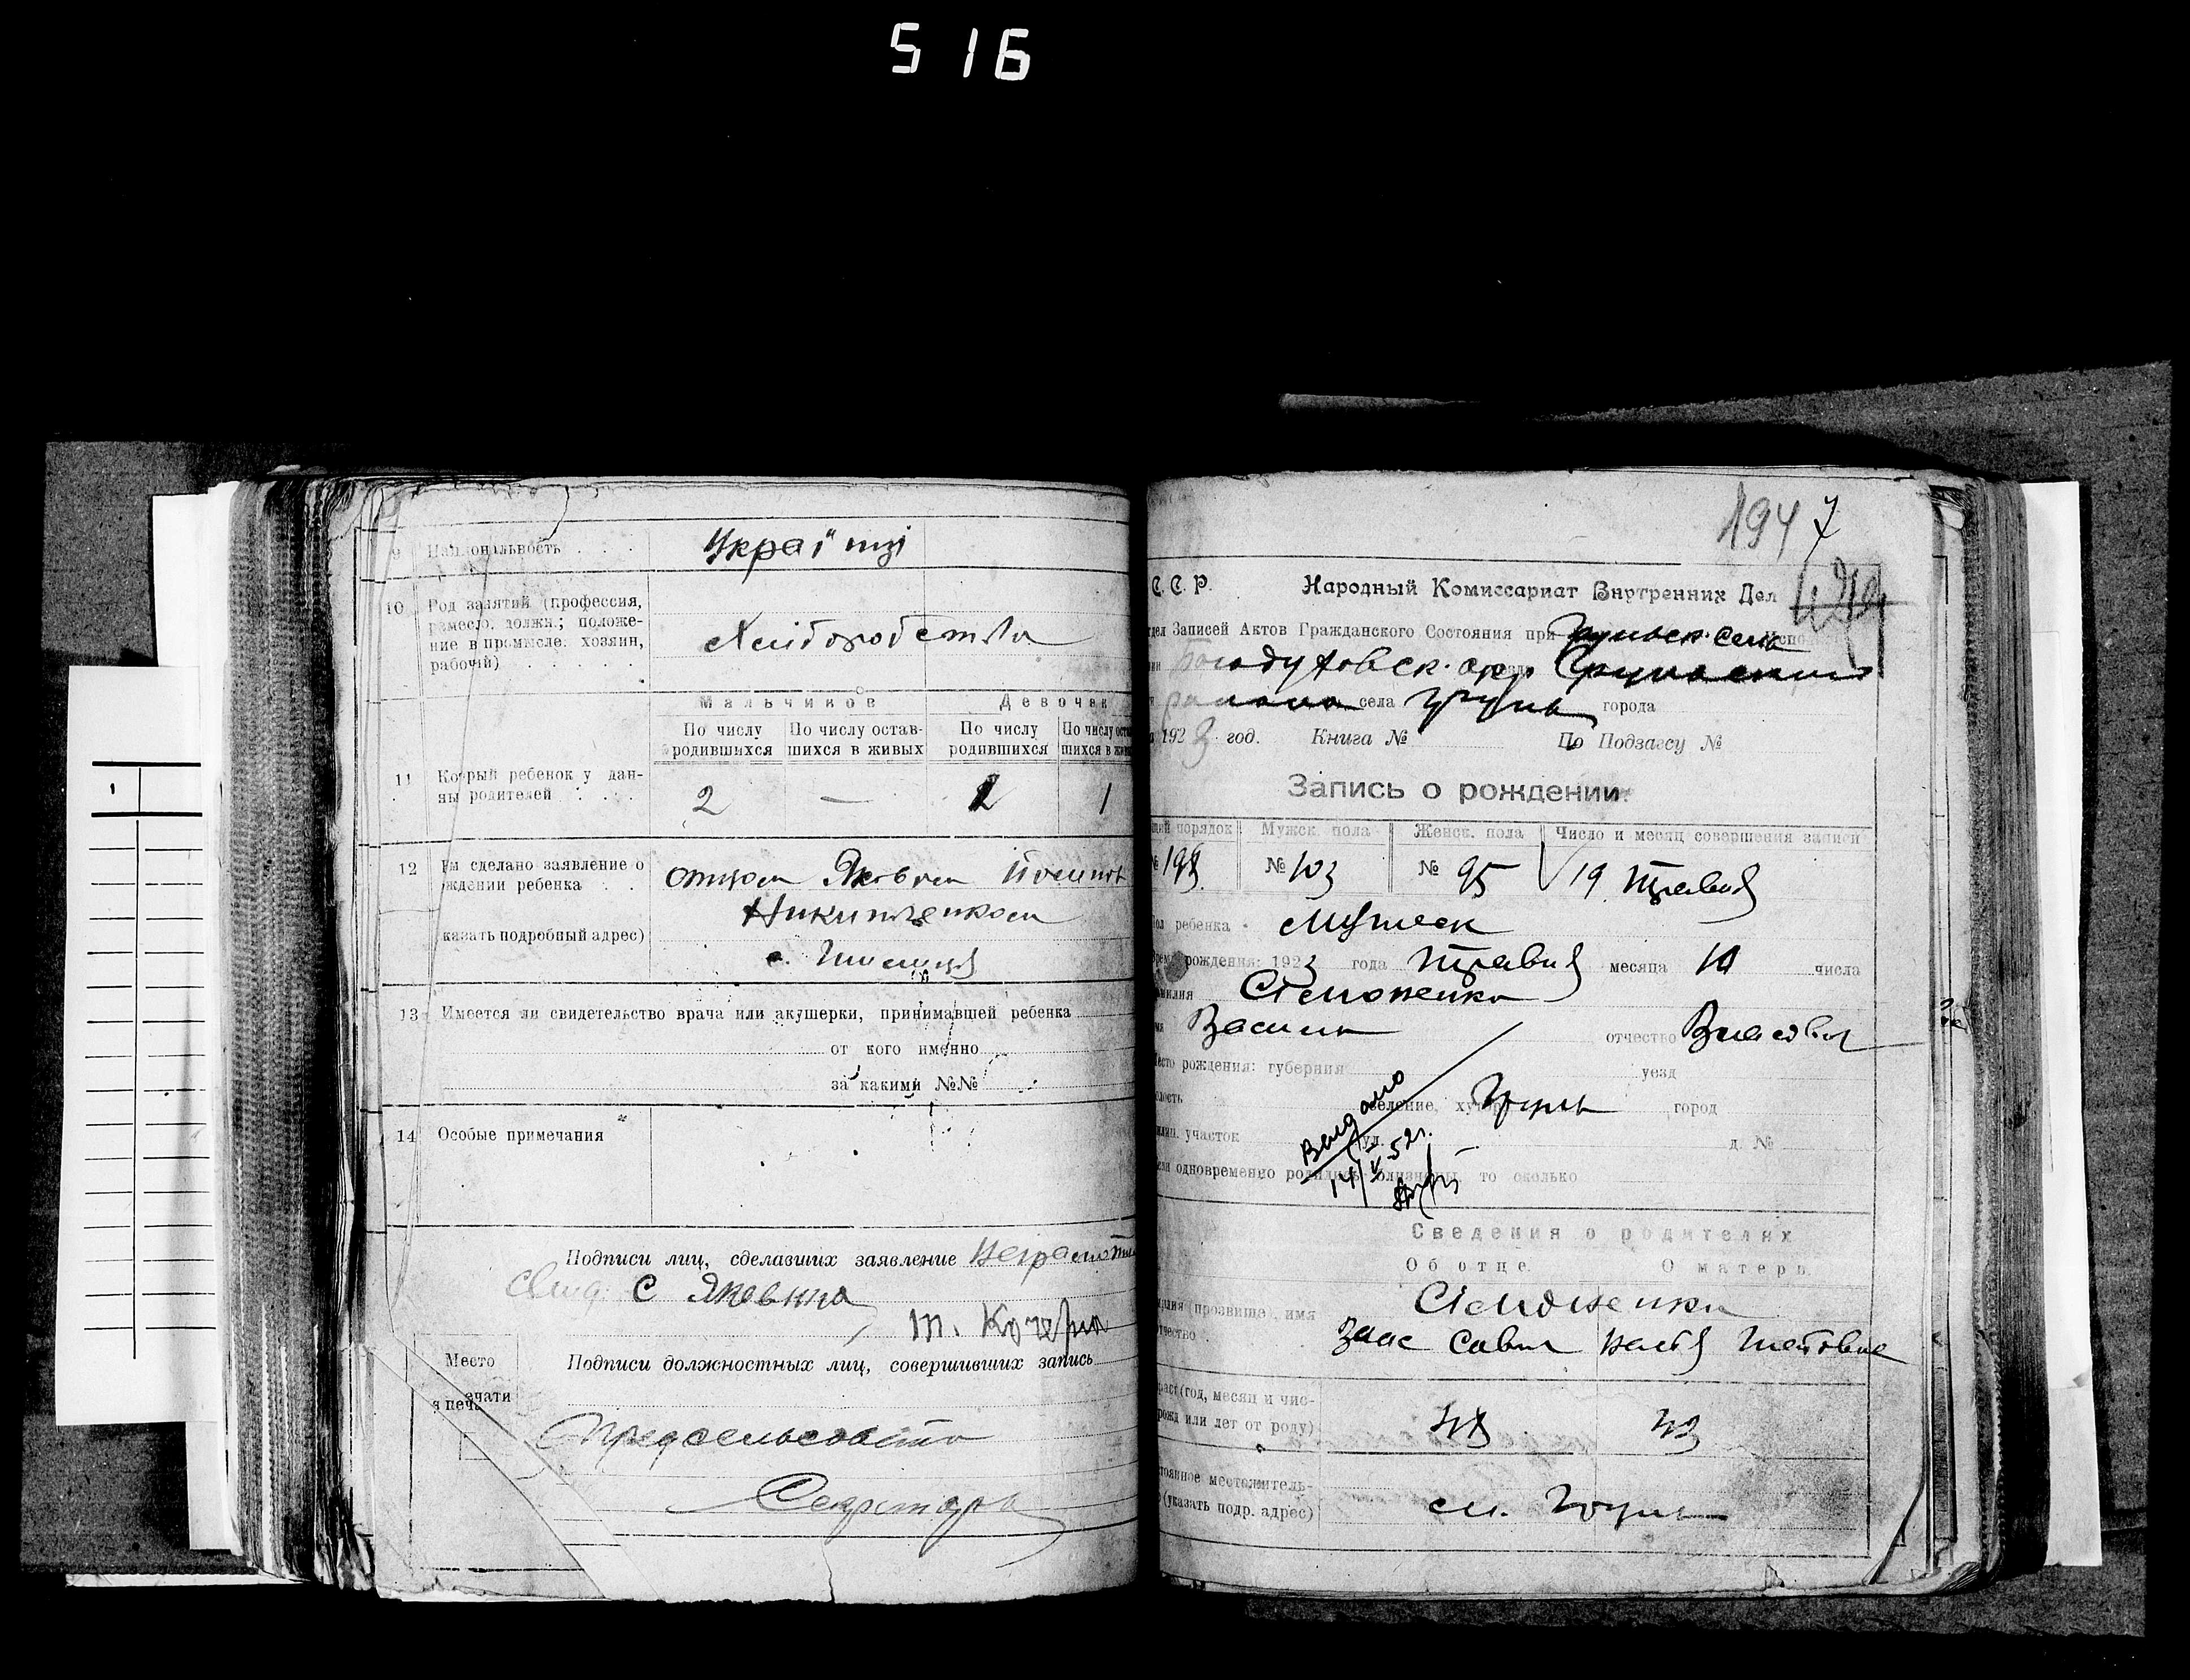 516
9 Национальность . . . Українці
10 Род занятий (профессия,
ремесло, должн.; положе-
ние в промысле: хозяин,
рабочий) . . . . . Хліборобства
Мальчиков Девочек
По числу родившихся По числу остав-шихся в живых По числу родившихся По числу оста шихся в жив
11 Который ребенок у дан-
ны родителей . . . 2 — 1
12 ем сделано заявление о
ждении ребенка . . отцом Яковом
Никитченком
казать подробный адрес) с.
13 Имеется ли свидетельство врача или акушерки, принимавшей ребенка
от кого именно
за какими №№
14 Особые примечания
Подписи лиц, сделавших заявление неграмотн
С Яковина
Т. Кочерга
Место Подписи должностных лиц, совершивших запись
печати
Предсельсовета
Секретарь
1947
С. С. Р. Народный Комиссариат Внутренних Дел
дел Записей Актов Гражданского Состояния при сель
Богодуховск. окр. Грунськ
района села Грунь города
192 3 год. Книга № По Подзагсу №
Запись о рождении.
щий порядок Мужск. пола Женск. пола Число и месяц совершения записи
№ 198 № 103 № 95 19 Травня
ол ребенка . Мужеск
рождения: 1923 года Травня месяца числа
милия Сімоненко
Василь отчество Власович
есто рождения: губерния уезд
лость селение, хутор Грунь город
участок ул. д. №
одновременно родились близнецы, то сколько
Выдано
14/V 52г.
Сведения о родителях
Об отце О матери
прозвище, имя Сімоненки
тчество Влас Савич Настя
раст (год, месяц и чис-
рожд или лет от роду) 48 43
стоянное местожитель-
(указать подр. адрес) см. Грунь